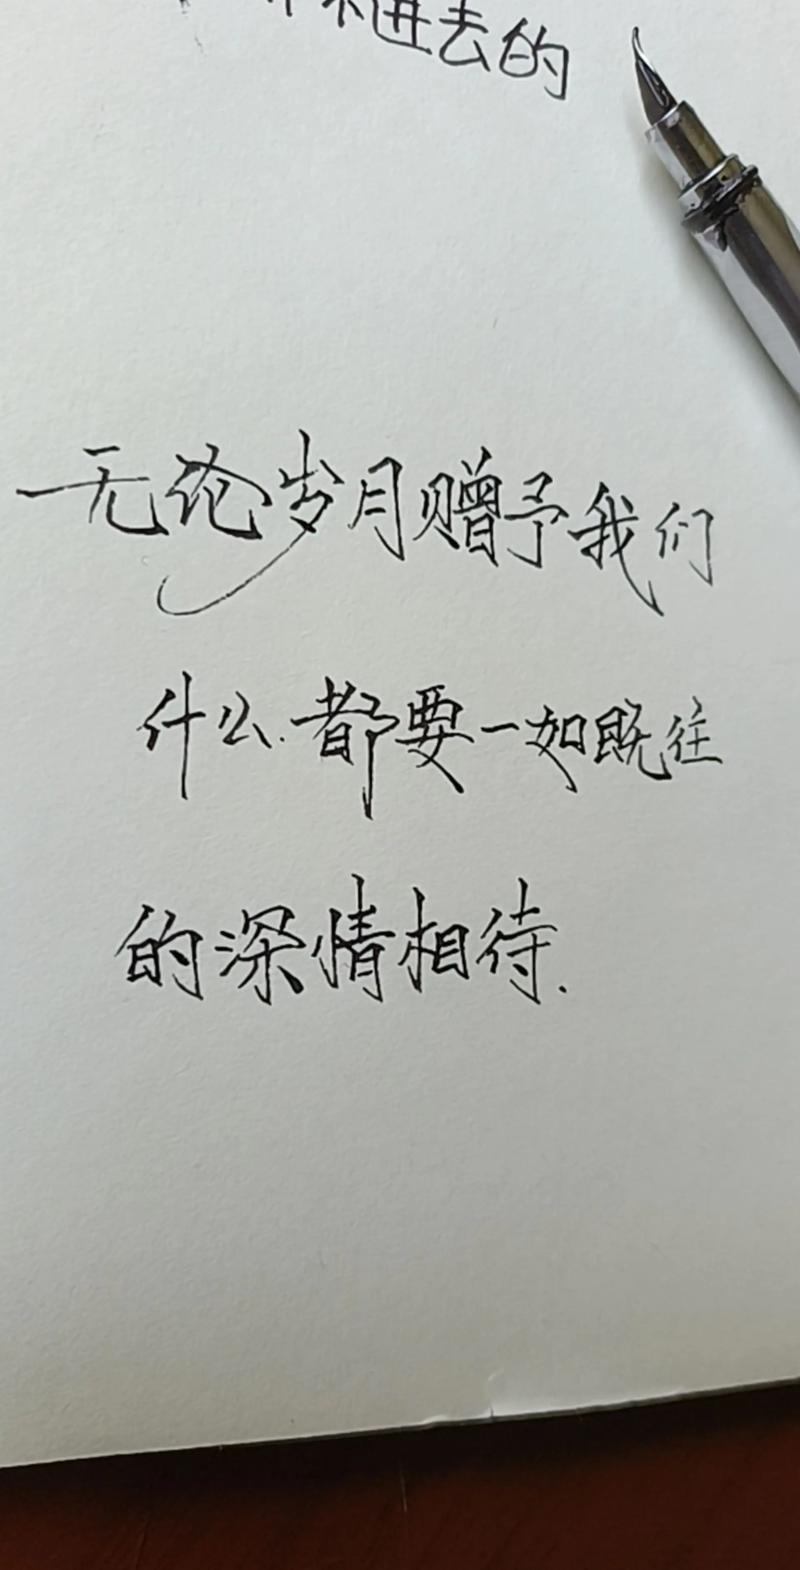 进去的
无论岁月赠予我们
什么.都要一如既往
的深情相待.